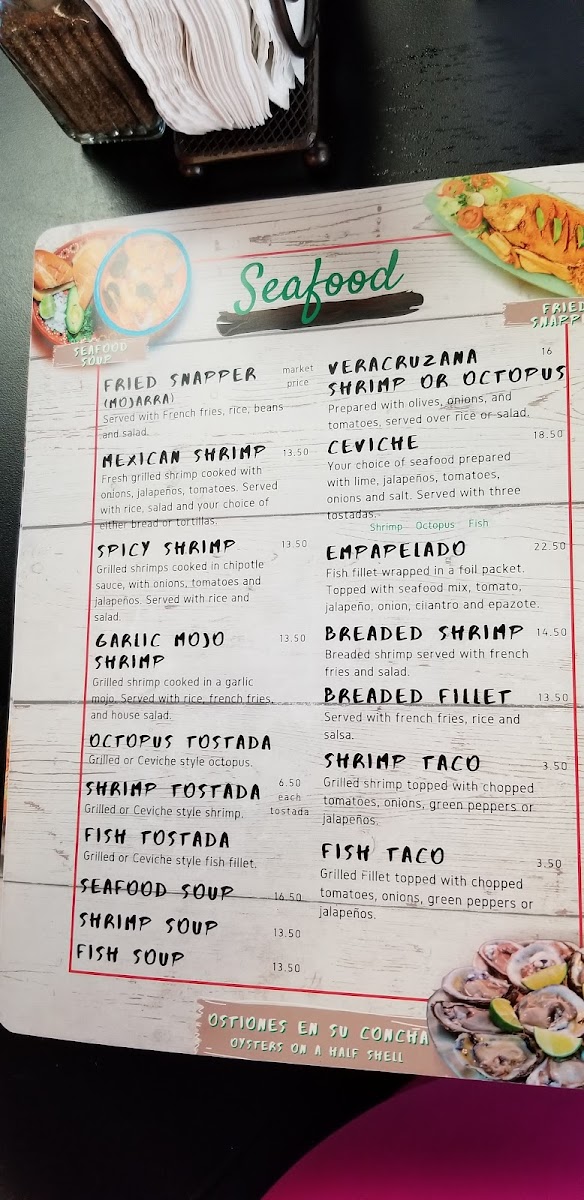 Seafood
SEAFOOD
SOUP
FRIED
SNAPP
FRIED SNAPPER
(MOJARRA)
market
price
Served with French fries, rice, beans
and salad.
MEXICAN SHRIMP 13.50
Fresh grilled shrimp cooked with
onions, jalapeños, tomatoes. Served
with rice, salad and your choice of
either bread or tortillas.
SPICY SHRIMP 13.50
Grilled shrimps cooked in chipotle
sauce, with onions, tomatoes and
jalapeños. Served with rice and
salad.
GARLIC MOJO 13.50
SHRIMP
Grilled shrimp cooked in a garlic
mojo. Served with rice, french fries,
and house salad.
OCTOPUS TOSTADA
Grilled or Ceviche style octopus.
SHRIMP TOSTADA
6.50
each
tostada
Grilled or Ceviche style shrimp.
FISH TOSTADA
Grilled or Ceviche style fish fillet.
SEAFOOD SOUP 16.50
SHRIMP SOUP 13.50
FISH SOUP 13.50
VERACRUZANA 16
SHRIMP OR OCTOPUS
Prepared with olives, onions, and
tomatoes, served over rice or salad.
CEVICHE 18.50
Your choice of seafood prepared
with lime, jalapeños, tomatoes,
onions and salt. Served with three
tostadas.
Shrimp Octopus Fish
EMPAPELADO 22.50
Fish fillet wrapped in a foil packet.
Topped with seafood mix, tomato,
jalapeño, onion, cilantro and epazote.
BREADED SHRIMP 14.50
Breaded shrimp served with french
fries and salad.
BREADED FILLET 13.50
Served with french fries, rice and
salsa.
SHRIMP TACO 3.50
Grilled shrimp topped with chopped
tomatoes, onions, green peppers or
jalapeños.
FISH TACO 3.50
Grilled Fillet topped with chopped
tomatoes, onions, green peppers or
jalapeños.
OSTIONES EN SU CONCHA
OYSTERS ON A HALF SHELL